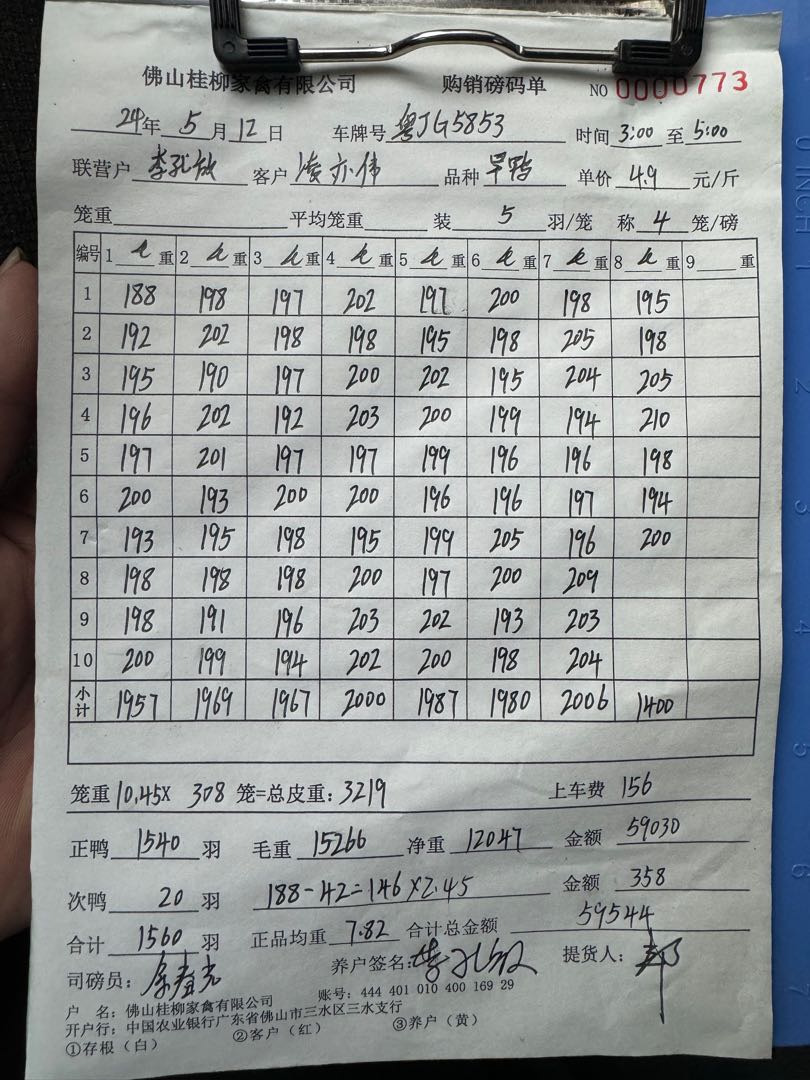 佛山桂柳家禽有限公司 购销磅码单 NO 0000773
24年 5 月 12 日 车牌号 粤JG5853 时间 3:00 至 5:00
联营户 李 客户 凌亦伟 品种 早鸭 单价 4.9 元/斤
笼重 平均笼重 装 5 羽/笼 称 4 笼/磅
编号 1 毛 重 2 毛 重 3 毛 重 4 毛 重 5 毛 重 6 毛 重 7 毛 重 8 毛 重 9 重
1 188 198 197 202 197 200 198 195
2 192 202 198 198 195 198 205 198
3 195 190 197 200 202 195 204 205
4 196 202 192 203 200 199 194 210
5 197 201 197 197 199 196 196 198
6 200 193 200 200 196 196 197 194
7 193 195 198 195 199 205 196 200
8 198 198 198 200 197 200 209
9 198 191 196 203 202 193 203
10 200 199 194 202 200 198 204
小计 1957 1969 1967 2000 1987 1980 2006 1400
笼重 10.45X 308 笼=总皮重: 3219 上车费 156
正鸭 1540 羽 毛重 15266 净重 12047 金额 59030
次鸭 20 羽 188-42=146×2.45 金额 358
合计 1560 羽 正品均重 7.82 合计总金额 59544
司磅员: 养户签名: 李 提货人:
户 名: 佛山桂柳家禽有限公司 账号: 444 401 010 400 169 29
开户行: 中国农业银行广东省佛山市三水区三水支行
①存根（白） ②客户（红） ③养户（黄）